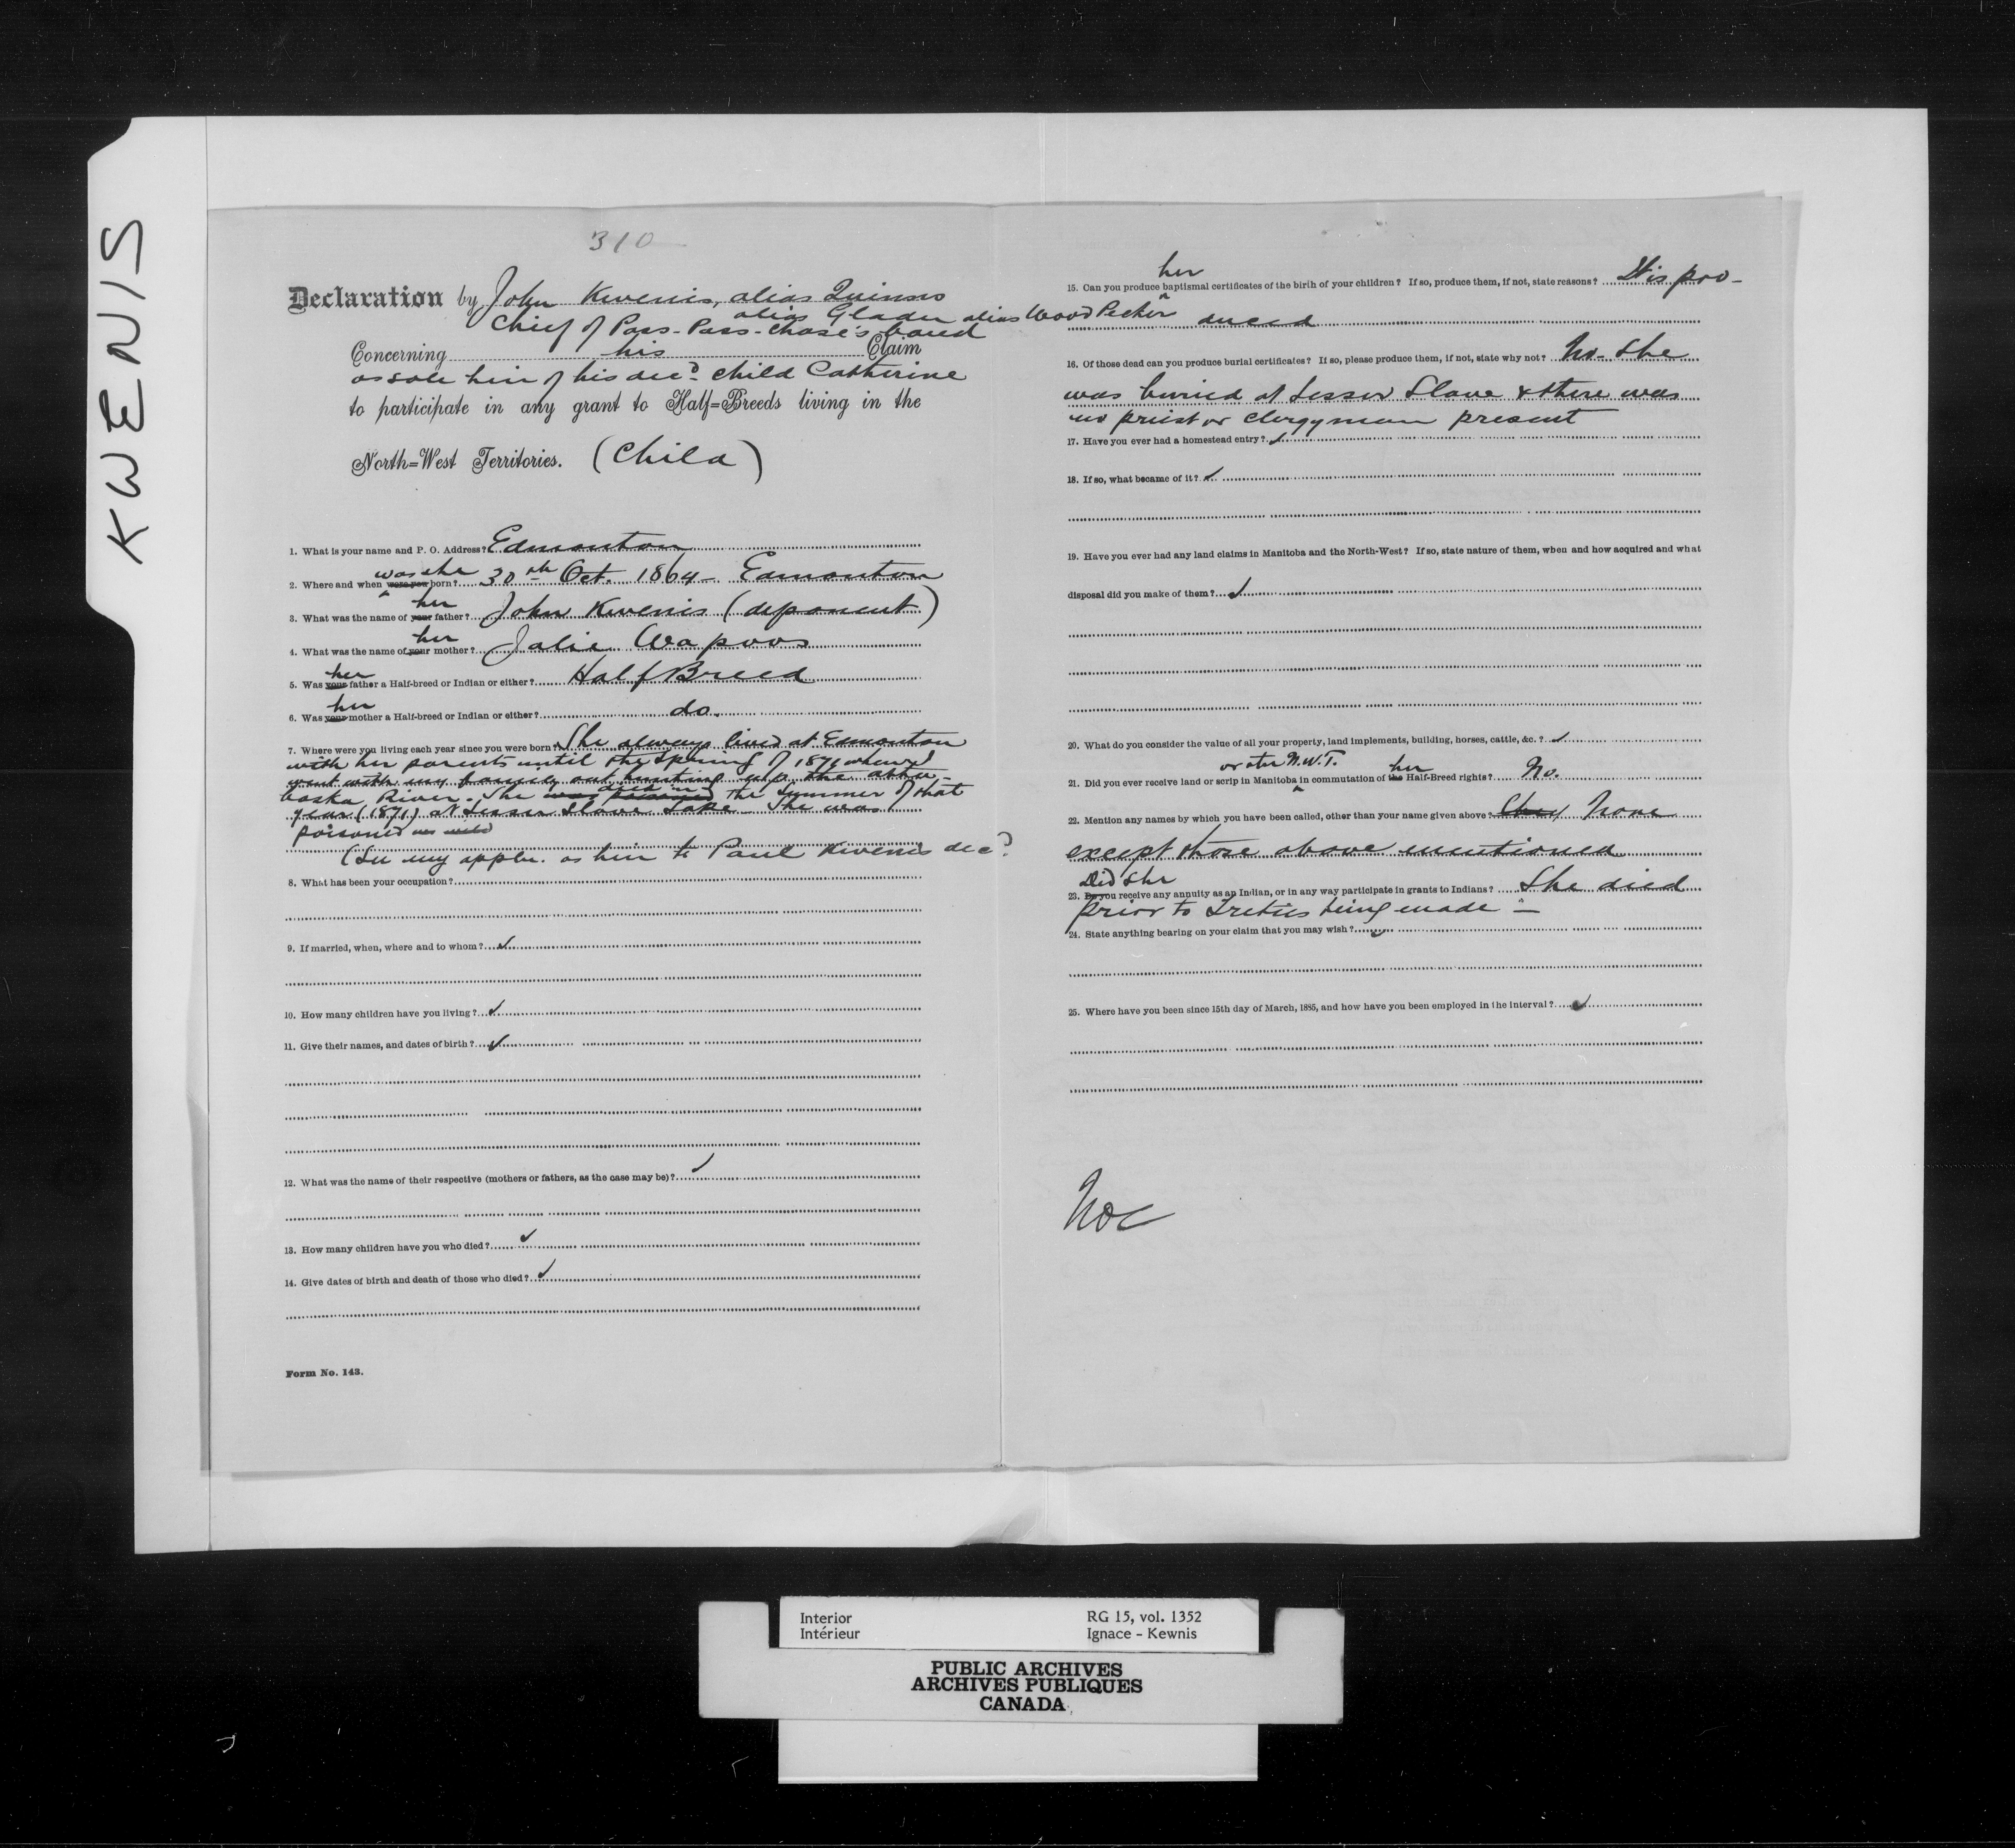 KWENIS
310
Declaration by John Kwenis, alias Quinsis
alias Gladu alias Wood Pecker
Chief of Pass-Pass-Chase's band
Concerning his Claim
as sole heir of his decd child Catherine
to participate in any grant to Half-Breeds living in the
North-West Territories. (Child)
1. What is your name and P. O. Address? Edmonton
was she
2. Where and when were you born? 30th Oct. 1864 - Edmonton
her
3. What was the name of your father? John Kwenis (deponent)
her
4. What was the name of your mother? Julie Wapoos
her
5. Was your father a Half-breed or Indian or either? Half Breed
her
6. Was your mother a Half-breed or Indian or either? do.
7. Where were you living each year since you were born? She always lived at Edmonton
with her parents until the Spring of 1871 when I
went with my family out hunting up the Atha-
baska River. She was poisoned died in the Summer of that
year (1871) at Lesser Slave Lake She was
poisoned
(See my appln. as heir to Paul Kwenis decd
8. What has been your occupation?
9. If married, when, where and to whom? ✓
10. How many children have you living? ✓
11. Give their names, and dates of birth? ✓
12. What was the name of their respective (mothers or fathers, as the case may be)? ✓
13. How many children have you who died? ✓
14. Give dates of birth and death of those who died? ✓
Form No. 143.
her
15. Can you produce baptismal certificates of the birth of your children? If so, produce them, if not, state reasons? It is pro-
duced
16. Of those dead can you produce burial certificates? If so, please produce them, if not, state why not? No - She
was buried at Lesser Slave & there was
no priest or clergyman present
17. Have you ever had a homestead entry? ✓
18. If so, what became of it? ✓
19. Have you ever had any land claims in Manitoba and the North-West? If so, state nature of them, when and how acquired and what
disposal did you make of them? ✓
20. What do you consider the value of all your property, land implements, building, horses, cattle, &c. ? ✓
or the N.W.T. her
21. Did you ever receive land or scrip in Manitoba in commutation of the Half-Breed rights? No.
22. Mention any names by which you have been called, other than your name given above? None
except those above mentioned
Did she
23. Do you receive any annuity as an Indian, or in any way participate in grants to Indians? She died
prior to Treties being made -
24. State anything bearing on your claim that you may wish? ✓
25. Where have you been since 15th day of March, 1885, and how have you been employed in the interval? ✓
Interior
Intérieur
RG 15, vol. 1352
Ignace - Kewnis
PUBLIC ARCHIVES
ARCHIVES PUBLIQUES
CANADA